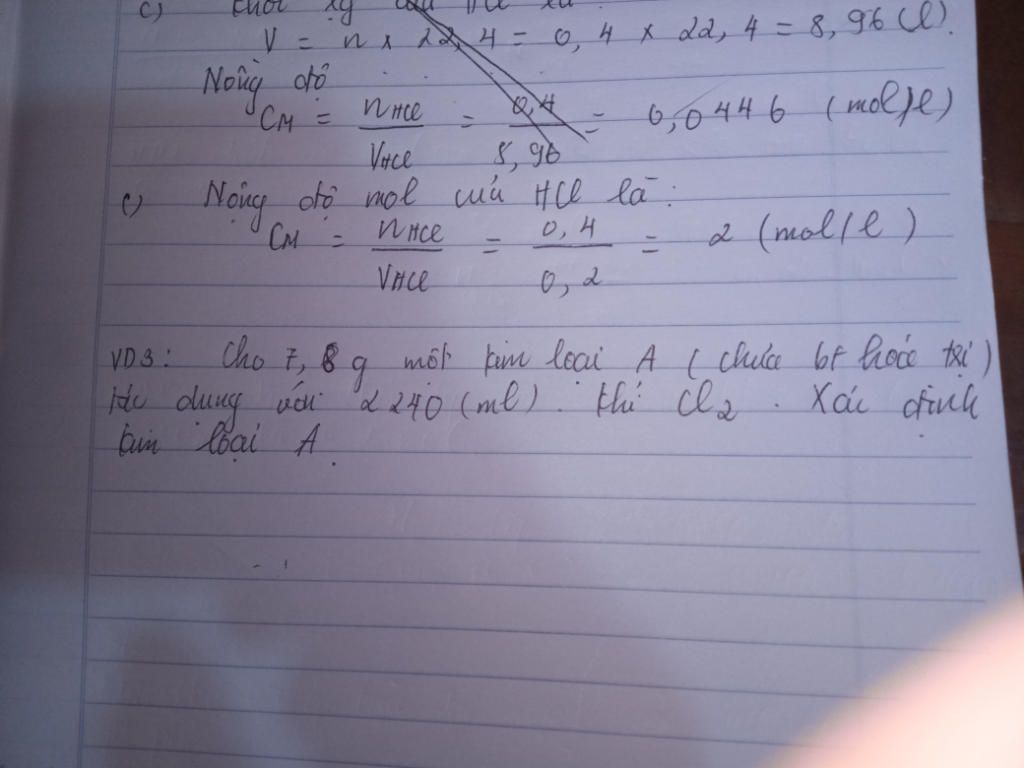 c) Khối lg của HCl là
V = n x 22,4 = 0,4 x 22,4 = 8,96 (l).
Nồng độ
CM = nHCl / VHCl = 0,4 / 8,96 = 0,0446 (mol/l)
c) Nồng độ mol của HCl là:
CM = nHCl / VHCl = 0,4 / 0,2 = 2 (mol/l)
VD3: Cho 7,8 g một kim loại A (chưa bt hoác trị)
tác dụng với 2240 (ml). Khí Cl2. Xác định
kim loại A.